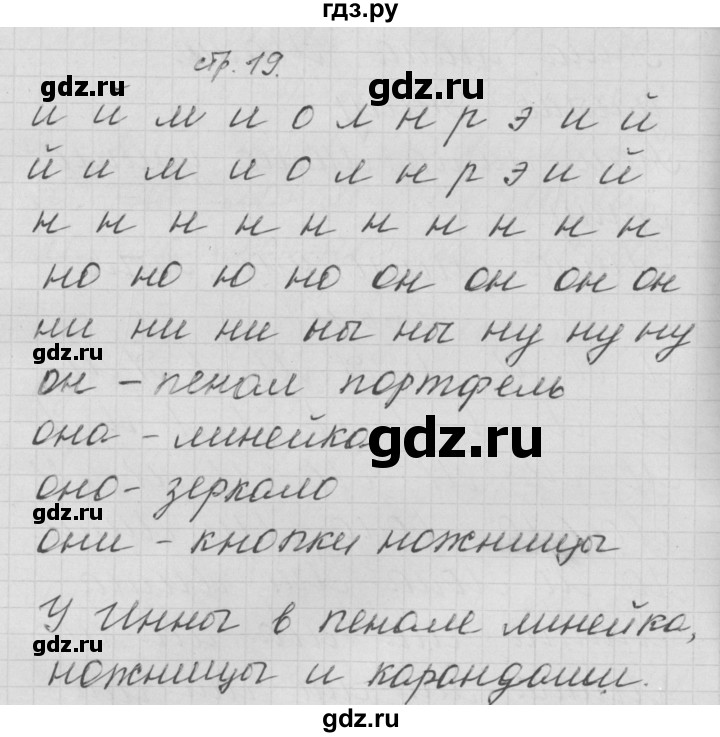 гдз.ру
стр. 19.
gdz.ru gdz.ru
й и м и о л н р э и й
й и м и о л н р э и й
н н н н н н н н н н
но но ю но он он он он
ни ни ни ны ны ну ну ну
gdz.ru
он - пенал портфель
она - линейка
gdz.ru
оно - зеркало
gdz.ru
они - кнопки ножницы
У Инны в пенале линейка,
gdz.ru
ножницы и карандаши.
gdz.ru
gdz.ru